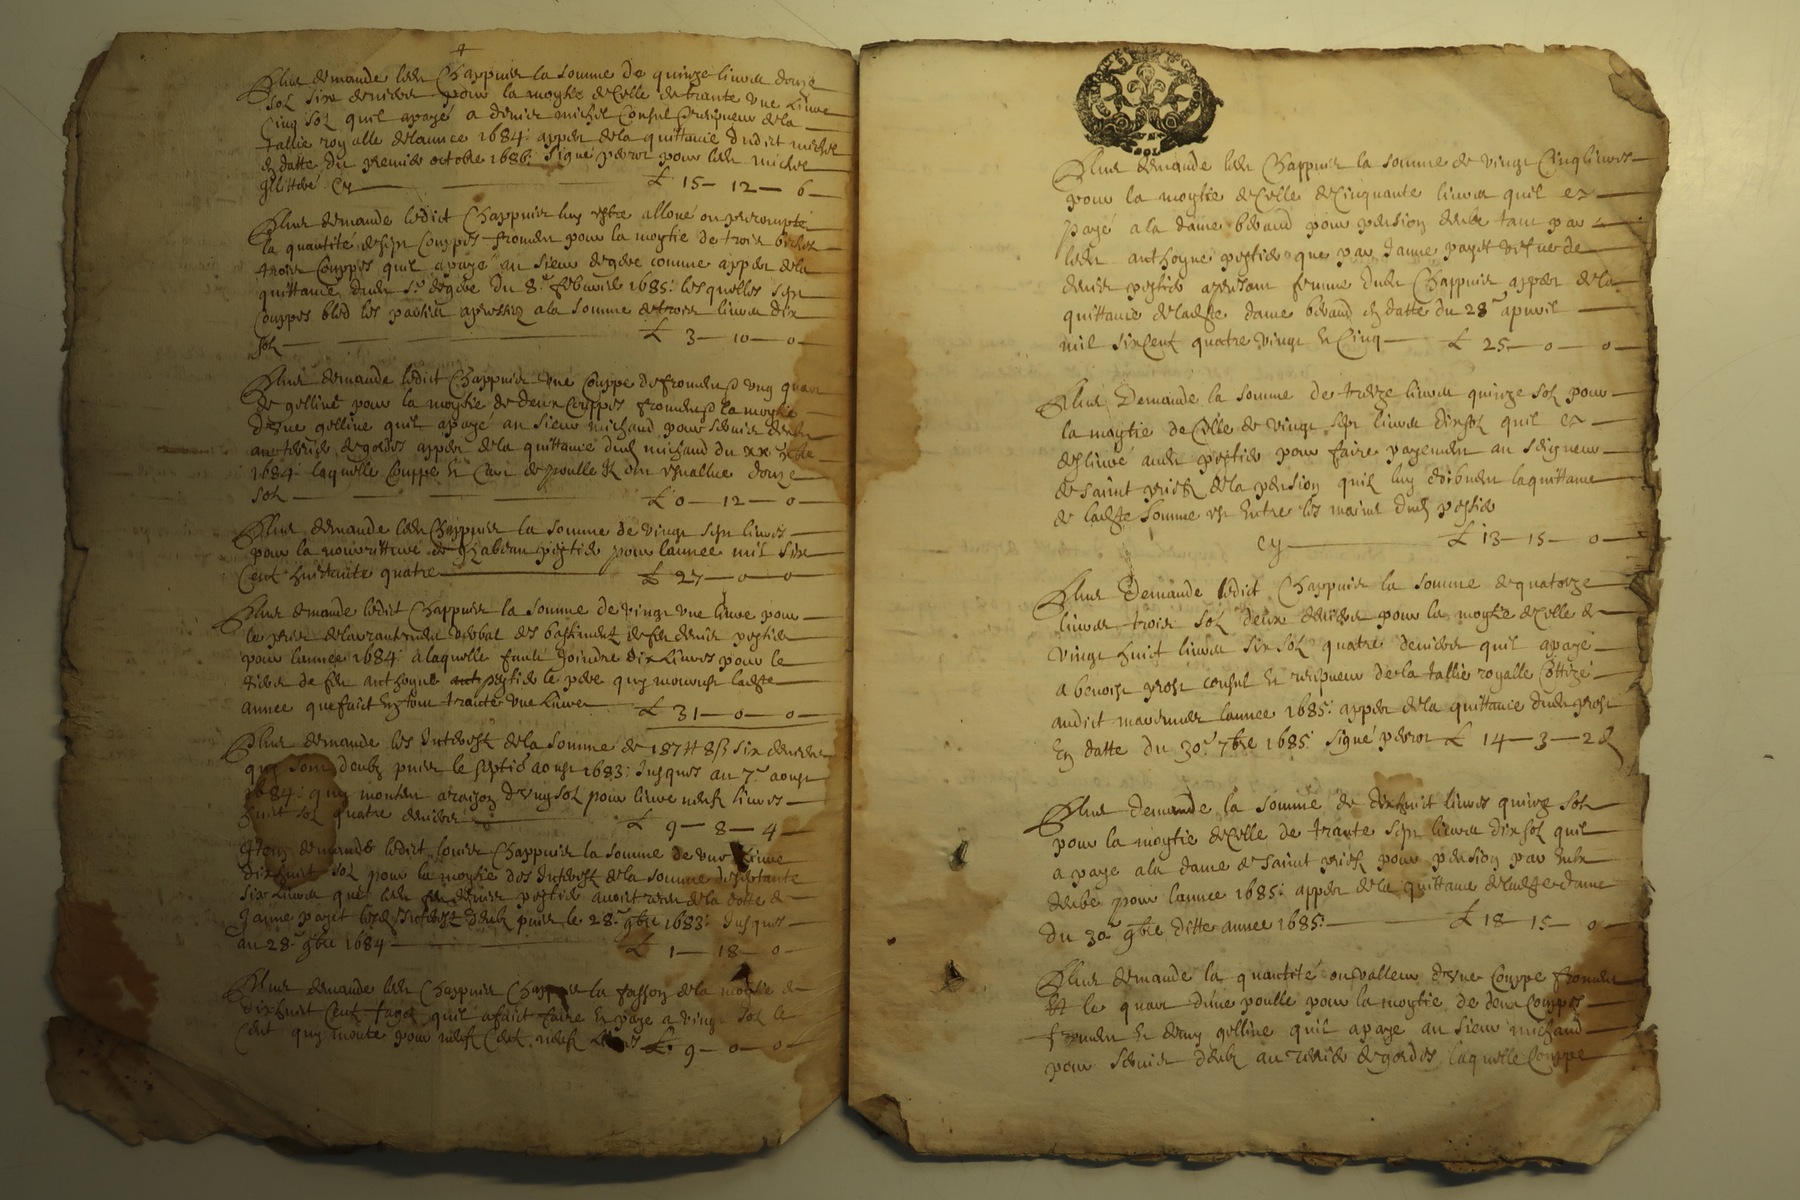 Plus demande ledit Chappuier la somme de quinze livres douze
sols six deniers pour la moytie de Celle de trante une Livre
Cinq sols quil a payé a denier michel Consul Recepueur de la
tallie royalle de lannee 1684: apper de la quittance dudict michel
En datte du premier octobre 1686: signé perror pour ledit michel
Cy £ 15 - 12 - 6
Plus demande ledict Chappuier luy estre alloué ou precompté
la quantité de sept Couppes fromen pour la moytie de trois bichez
trois Couppes quil a payé au sieur comme apper de la
quittance dudit Sr du 8e febvrie 1685: lesquelles sept
Couppes bled les parties apressiez a la somme de trois livres dix
sols £ 3 - 10 - 0
Plus demande ledict Chappuier une Couppe de fromen & ung quar
de gelline pour la moytie de deux Couppes fromen & la moytie
dune gelline quil a payé au sieur michaud pour servis
de gordes apper de la quittance dud michaud du xx
1684 laquelle Couppe et Cart de poulle donze
sols £ 0 - 12 - 0
Plus demande ledit Chappuier la somme de vingt sept livres
pour la nouritture de pestie pour lannee mil six
Cent huictante quatre £ 27 - 0 - 0
Plus demande ledict Chappuier la somme de vingt une livre pour
le prix verbal des bastiment de feu denis pestie
pour lannee 1684: a laquelle faut joindre dix Livres pour le
de feu anthoyne pestie le pere quy mourust ladite
annee que faict En tout trante une Livres £ 31 - 0 - 0
Plus demande les Interest de la somme de 187 # 8 ß six deniers
quy sont deubz puis le septie aoust 1683: Jusques au 7e aoust
1684: quy monten a raizon dung sol pour livre neuf livres
huit sols quatre deniers £ 9 - 8 - 4
Item demande ledict Chappuier la somme de une Livre
dixhuit sol pour la moytie des Interest de la somme de septante
six Livres que ledit feu denier pestie avoit receu de la dotte de
Janne payet lesd Interest deubz puis le 28e 9bre 1683: Jusques
au 28e 9bre 1684 £ 1 - 18 - 0
Plus demande ledit Chappuier la fasson de la moytie de
dixhuit Cent fagot quil a faict faire Et paye a vingt sols le
Cent quy monte pour neuf Cent neuf Livres £ 9 - 0 - 0
Plus demande ledit Chappuier la somme de vingt Cinq livres
pour la moytie de Celle de Cinquante livres quil
payé a la dame beraud pour pension tant par
ledit anthoyne pestie que par Janne payet vefve de
denier pestie apresant femme dudit Chappuier apper de la
quittance de ladite dame beraud En datte du 28e apuril
mil six Cent quatre vingt et Cinq £ 25 - 0 - 0
Plus Demande la somme de treize livres quinze sols pour
la moytie de Celle de vingt sept livres dix sols quil
deslivré audit pestie pour faire payemen au seigneur
de saint priest de la pension quil luy laquittance
de ladite somme est Entre les mains dud pestie
Cy £ 13 - 15 - 0
Plus Demande ledict Chappuier la somme de quatorze
livres trois sols deux deniers pour la moytie de Celle de
vingt huict livres six sols quatre deniers quil a payé
a benoist prost consul et recepueur de la tallie royalle Cottizé
audict lannee 1685: apper de la quittance dudit prost
En datte du 30e 7bre 1685: signé perror £ 14 - 3 - 2 d
Plus demande la somme de dixhuit livres quinze sols
pour la moytie de Celle de trante sept livres dix sols quil
a paye a la dame de saint priest pour pension par
pour lannee 1685: apper de la quittance de ladite dame
du 30e 9bre ditte annee 1685: £ 18 - 15 - 0
Plus demande la quantité ou valleur dune Couppe fromen
Et le quart dune poulle pour la moytie de deux Couppes
fromen Et demy gelline quil a paye au sieur michaud
pour servis de gordes laquelle Couppe